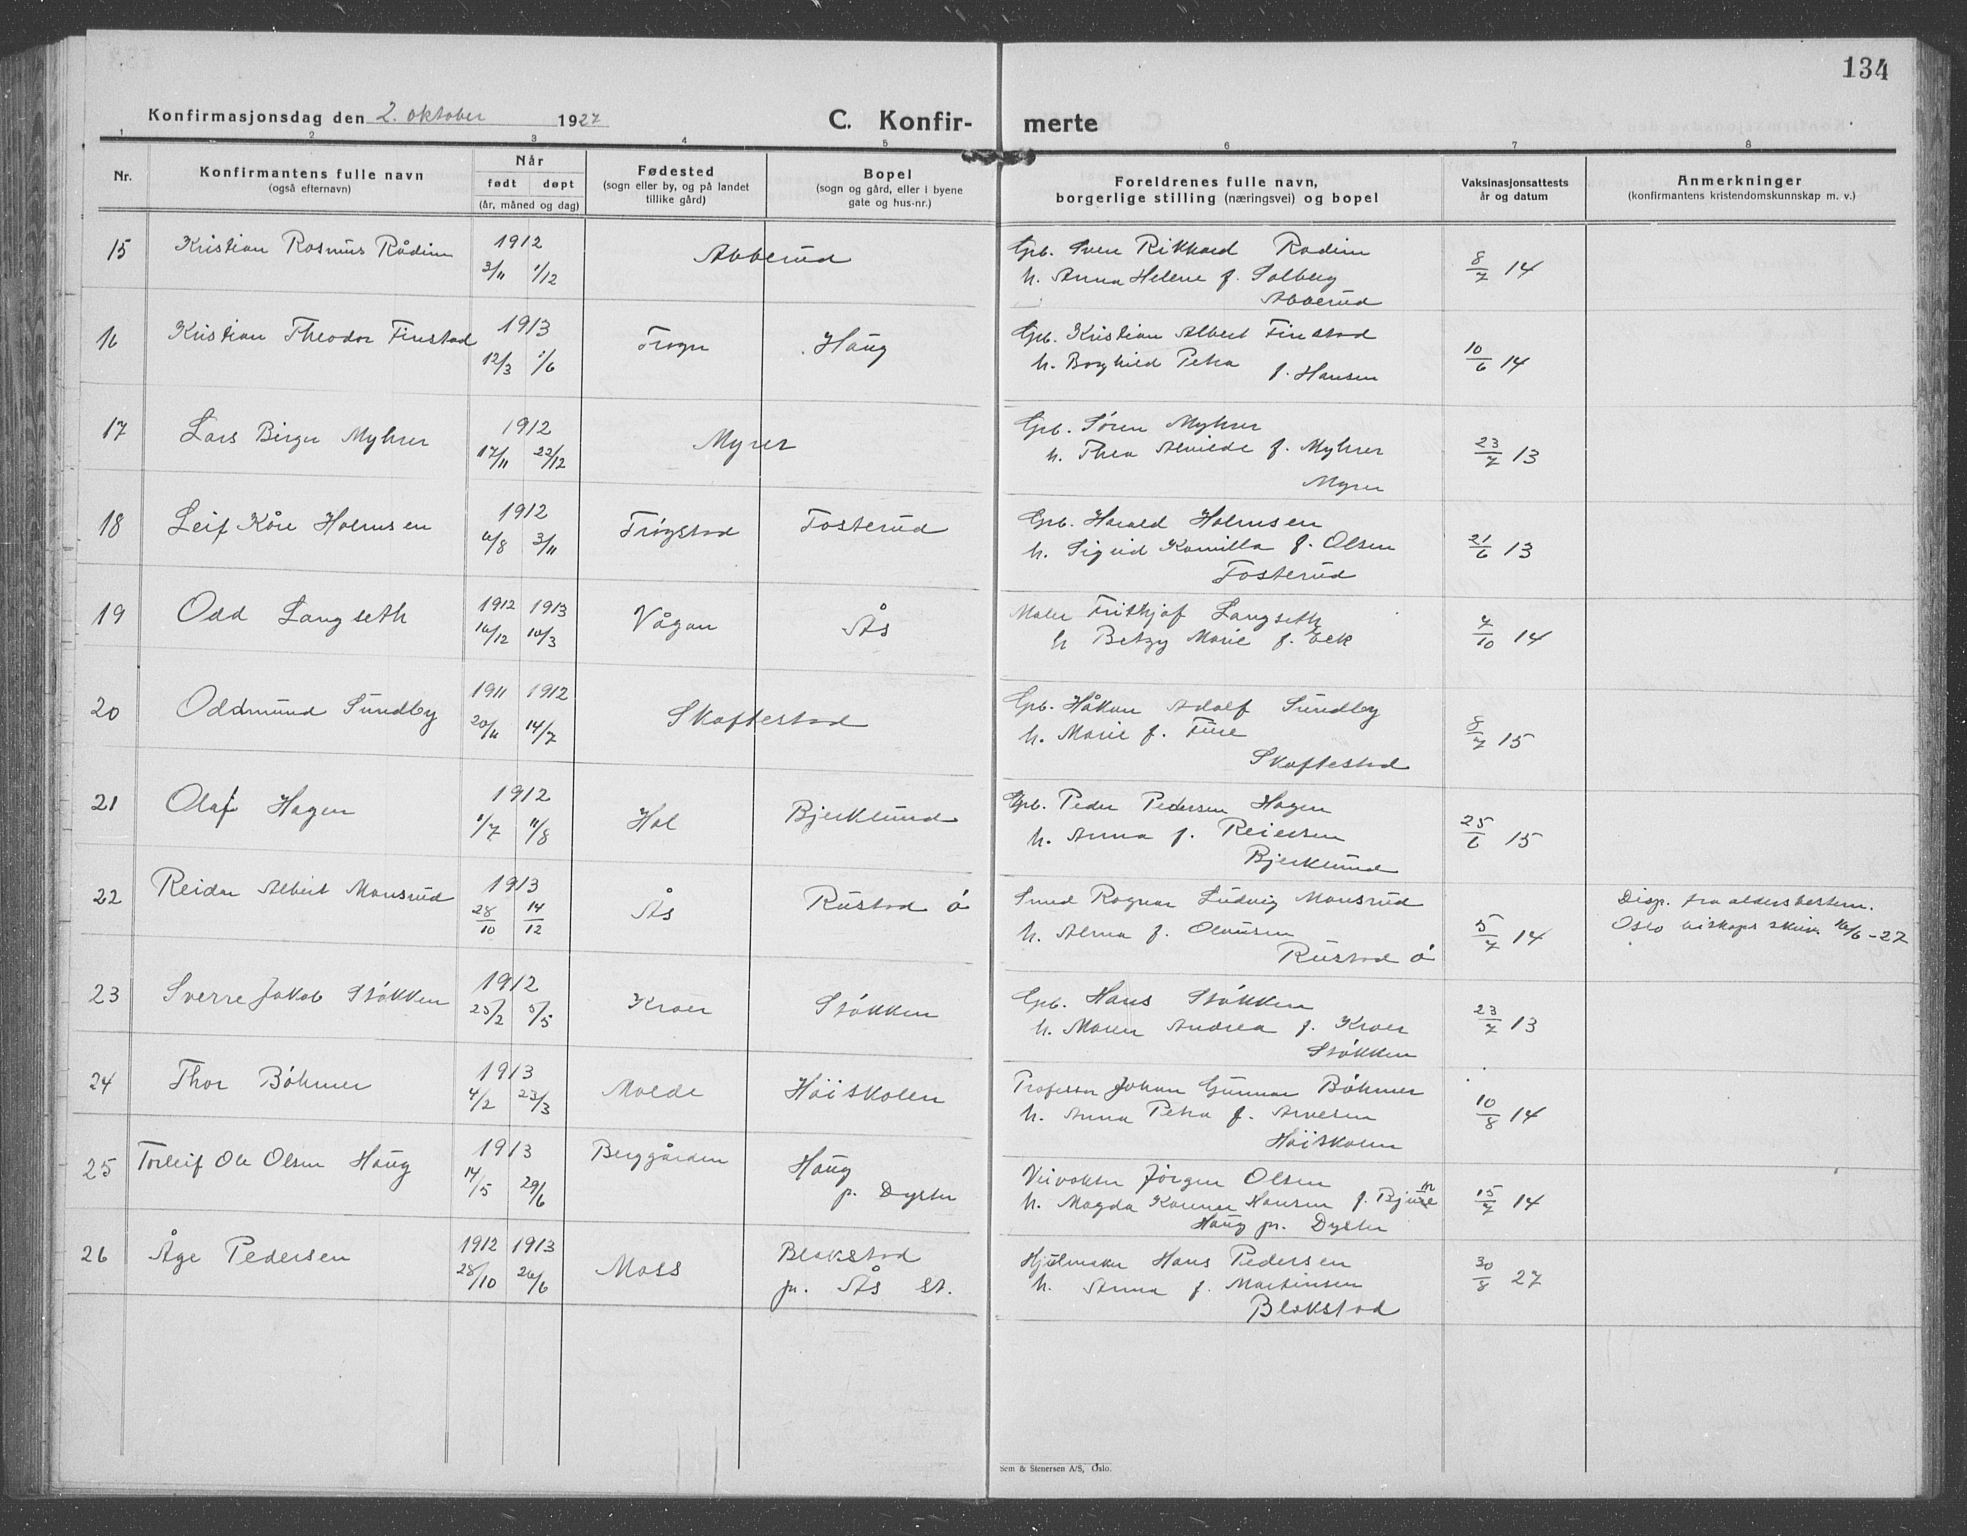 134
Konfirmasjonsdag den 2. oktober 1927
C. Konfir- merte
1 2 3 4 5 6 7 8
Nr.
Konfirmantens fulle navn
(også efternavn)
Når
født døpt
(år, måned og dag)
Fødested
(sogn eller by, og på landet
tillike gård)
Bopel
(sogn og gård, eller i byene
gate og hus-nr.)
Foreldrenes fulle navn,
borgerlige stilling (næringsvei) og bopel
Vaksinasjonsattests
år og datum
Anmerkninger
(konfirmantens kristendomskunnskap m. v.)
15 Kristian Rasmus Rådim 1912 Abberud Gpb. Sven Rikkard Radim
3/11 1/12 h. Anna Helene f. Solberg 8/7 14
Abberud
16 Kristian Theodor Finstad 1913 Frogn Haug Gpb. Kristian Albert Finstad
12/3 1/6 h. Borghild Petra f. Hansen 10/6 14
17 Lars Birger Myhrer 1912 Myrer Gpb. Sören Myhrer
17/11 22/12 h. Thea Alvilde f. Myhrer 23/7 13
Myrer
18 Leif Kåre Holmsen 1912 Trøgstad Fosterud Gpb. Harald Holmsen
6/8 3/11 h. Sigrid Kamilla f. Olsen 21/6 13
Fosterud
19 Odd Langseth 1912 1913 Vågan Ås Maler Frithjof Langseth
16/12 16/3 h Betzy Marie f. Eek 7/10 14
20 Oddmund Sundby 1911 1912 Skaftestad Gpb. Håkon Adolf Sundby
20/11 14/7 h. Marie f. Fure 8/7 15
Skaftestad
21 Olaf Hagen 1912 Hol Bjerklund Gpb. Peder Pedersen Hagen
1/7 11/8 h. Anna f. Reiersen 25/6 15
Bjerklund
22 Reidar Albert Mansrud 1913 Ås Rustad ø Smed Ragnar Ludvig Mansrud Disp. fra aldersbestem.
28/10 14/12 h. Alma f. Olaussen 5/7 14 Oslo biskops skriv. 16/6 - 27
Rustad ø
23 Sverre Jakob Støkken 1912 Kroer Støkken Gpb. Hans Støkken
25/2 5/5 h. Maren Andrea f. Kroer 23/7 13
Støkken
24 Thor Böhmer 1913 Molde Höiskolen Professor Johan Gunnar Böhmer
4/2 23/3 h. Anna Petra f. Arnesen 10/8 14
Höiskolen
25 Torleif Ole Olsen Haug 1913 Berggården Haug Veivokter Jørgen Olsen
14/5 29/6 p. Dyster h. Magda Hansen f. 15/7 14
Haug pr. Dyster
26 Åge Pedersen 1912 1913 Moss Blakstad Hjulmaker Hans Pedersen
28/10 26/6 pr. Ås st. h. Anna f. Martinsen 30/8 27
Blakstad
Sem & Stenersen A/S, Oslo.